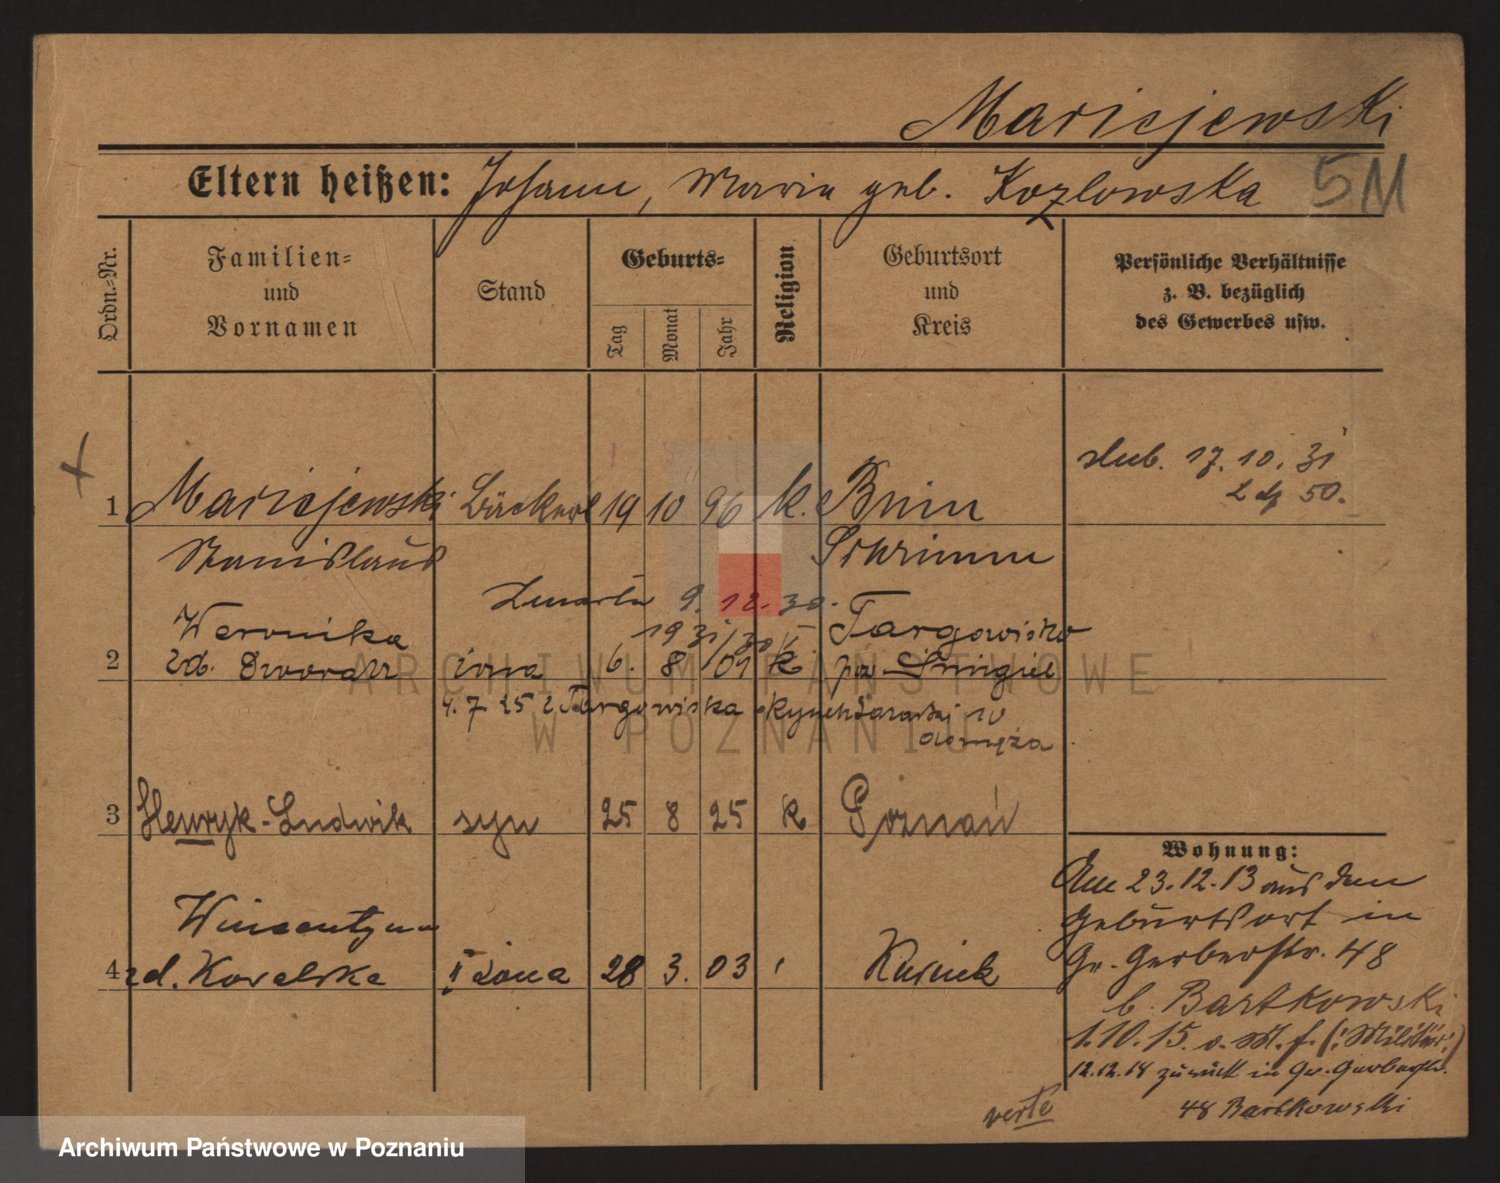 Maricjewski
Eltern heißen: Johann, Maria geb. Kozlowska
5M
Ordn.-Nr.
Familien-
und
Vornamen
Stand
Geburts-
Tag
Monat
Jahr
Religion
Geburtsort
und
Kreis
Persönliche Verhältnisse
z. B. bezüglich
des Gewerbes usw.
slub. 17. 10. 31
50.
1 Maricjewski Bäckerl 19 10 96 k. Bnin
Stanislaus Schrimm
Zmarła 9. 12. 30.
1931/30
Weronika Targowisko
2 zd. Dworak żona 6. 8 01 k pow Śmigiel
4. 7 25 z Targowiska Rynek Łazarski 10
do męża
3 Henryk-Ludwik syn 25 8 25 k Poznań
Wincentyna
4 zd. Kovalska II żona 28 3. 03 Kurnik
Wohnung:
Am 23.12.13 aus dem
Geburtsort in
Gr. Gerberstr. 48
b. Bartkowski
1.10.15. v. M. f. (:Militär:)
12.12.18 zurück in Gr. Gerberstr.
48 Bartkowski
verte
ARCHIWUM PAŃSTWOWE
W POZNANIU
Archiwum Państwowe w Poznaniu